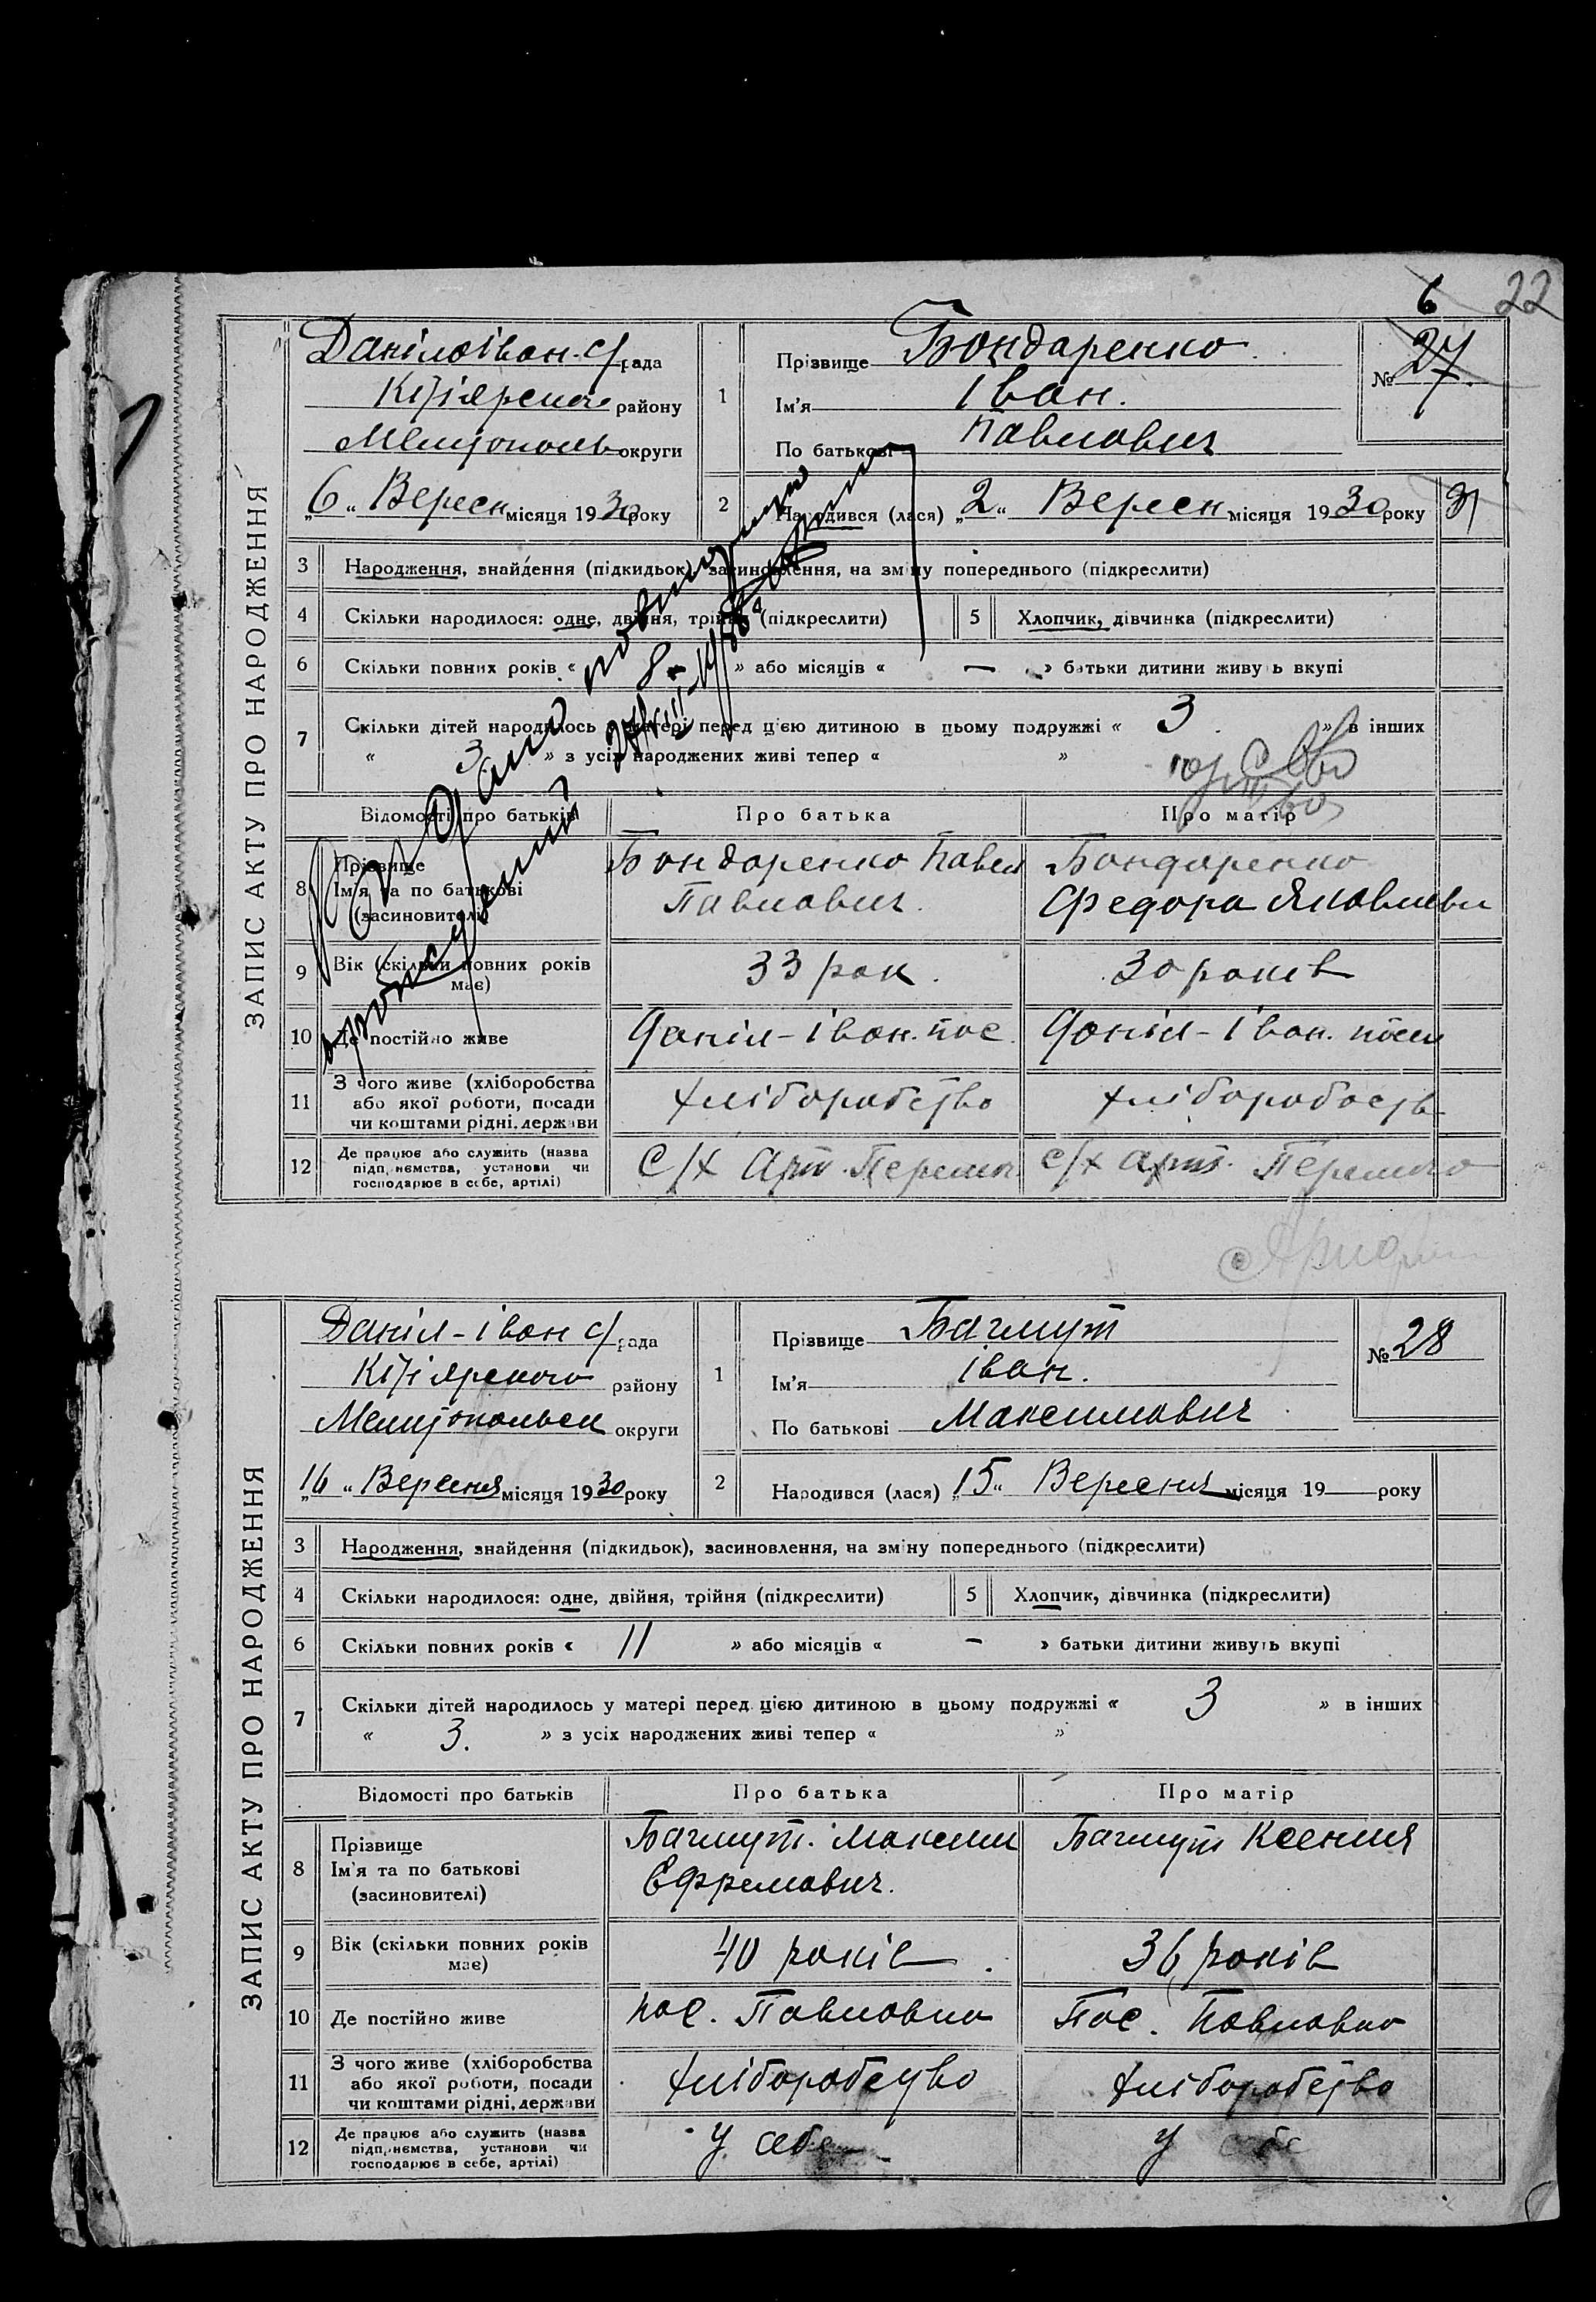 6 22
ЗАПИС АКТУ ПРО НАРОДЖЕННЯ
Данілоіван. с/рада
району
округи
„6“ Вересн місяця 1930 року
1
Прізвище Бондаренко
Ім'я Іван.
По батькові Павлович
№ 27
2
Народився (лася) „2“ Вересн місяця 1930 року
31
3 Народження, знайдення (підкидьок), засиновлення, на зміну попереднього (підкреслити)
4 Скільки народилося: одне, двійня, трійня (підкреслити) 5 Хлопчик, дівчинка (підкреслити)
6 Скільки повних років « 8 » або місяців « — » батьки дитини живуть вкупі
7 Скільки дітей народилось у матері перед цією дитиною в цьому подружжі « 3 » в інших
« 3 » з усіх народжених живі тепер « »
Відомості про батьків Про батька Про матір
8 Прізвище Бондаренко Павел Бондаренко
Ім'я та по батькові Павлович. Федора
(засиновителі)
9 Вік (скільки повних років має) 33 рок. 30 років
10 Де постійно живе Даніл-Іван. пос. Даніл-Іван. посел
11 З чого живе (хліборобства
або якої роботи, посади хліборобство
чи коштами рідні, держави
12 Де працює або служить (назва
підприємства, установи чи С/х Арт. с/х арт.
господарює в себе, артілі)
ЗАПИС АКТУ ПРО НАРОДЖЕННЯ
Даніл-Іван с/рада
району
округи
„16“ Вересня місяця 1930 року
1
Прізвище Багмут
Ім'я Іван.
По батькові Максимович
№ 28
2
Народився (лася) „15“ Вересня місяця 19— року
3 Народження, знайдення (підкидьок), засиновлення, на зміну попереднього (підкреслити)
4 Скільки народилося: одне, двійня, трійня (підкреслити) 5 Хлопчик, дівчинка (підкреслити)
6 Скільки повних років « 11 » або місяців « – » батьки дитини живуть вкупі
7 Скільки дітей народилось у матері перед цією дитиною в цьому подружжі « 3 » в інших
« 3. » з усіх народжених живі тепер « »
Відомості про батьків Про батька Про матір
8 Прізвище Багмут. Максим Багмут Ксения
Ім'я та по батькові Ефремович.
(засиновителі)
9 Вік (скільки повних років має) 40 років. 36 років
10 Де постійно живе пос. Павловка Пос. Павловка
11 З чого живе (хліборобства
або якої роботи, посади хліборобство хліборобство
чи коштами рідні, держави
12 Де працює або служить (назва
підприємства, установи чи у себе у себе
господарює в себе, артілі)